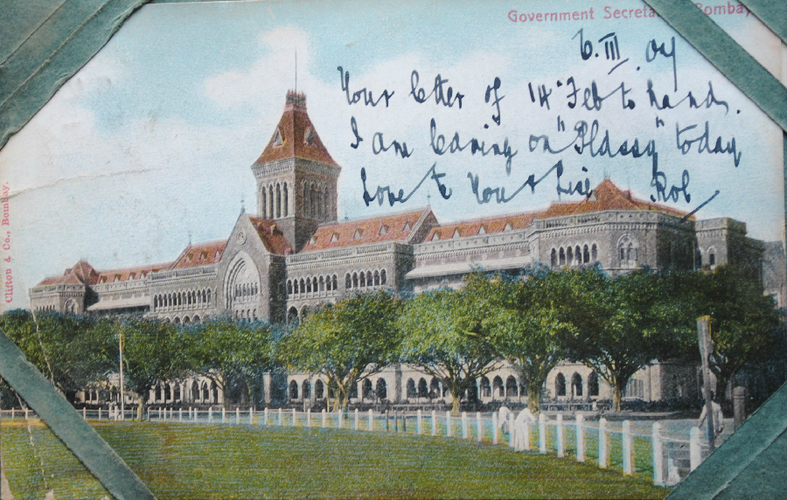 Government Secreta Bombay
6.III.04
Your letter of 14 Feb to hand.
I am leaving on "Plassy" today
Love to You & Lisi Rob
Clifton & Co., Bombay.